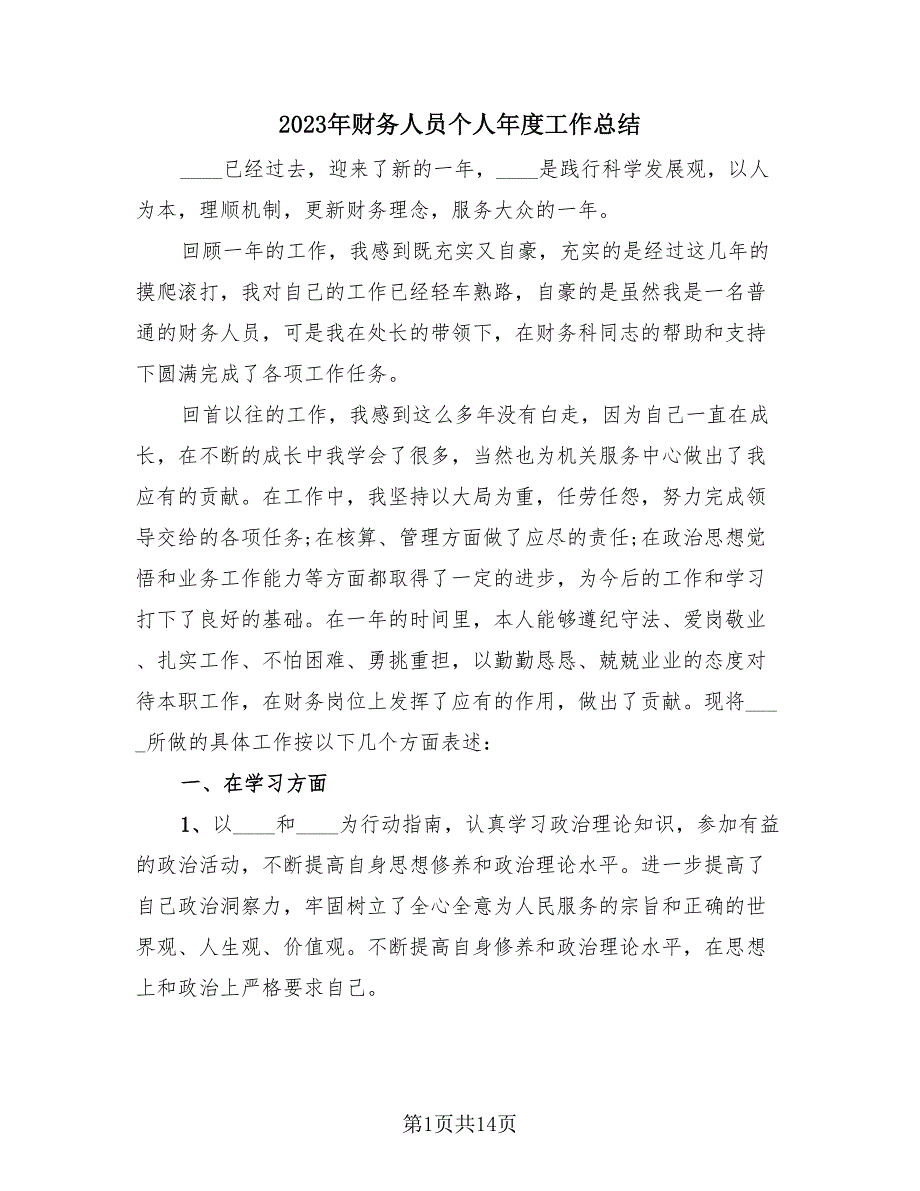 2023年财务人员个人年度工作总结
____已经过去，迎来了新的一年，____是践行科学发展观，以人
为本，理顺机制，更新财务理念，服务大众的一年。
回顾一年的工作，我感到既充实又自豪，充实的是经过这几年的
摸爬滚打，我对自己的工作已经轻车熟路，自豪的是虽然我是一名普
通的财务人员，可是我在处长的带领下，在财务科同志的帮助和支持
下圆满完成了各项工作任务。
回首以往的工作，我感到这么多年没有白走，因为自己一直在成
长，在不断的成长中我学会了很多，当然也为机关服务中心做出了我
应有的贡献。在工作中，我坚持以大局为重，任劳任怨，努力完成领
导交给的各项任务;在核算、管理方面做了应尽的责任;在政治思想觉
悟和业务工作能力等方面都取得了一定的进步，为今后的工作和学习
打下了良好的基础。在一年的时间里，本人能够遵纪守法、爱岗敬业
、扎实工作、不怕困难、勇挑重担，以勤勤恳恳、兢兢业业的态度对
待本职工作，在财务岗位上发挥了应有的作用，做出了贡献。现将___
_所做的具体工作按以下几个方面表述：
一、在学习方面
1、以____和____为行动指南，认真学习政治理论知识，参加有益
的政治活动，不断提高自身思想修养和政治理论水平。进一步提高了
自己政治洞察力，牢固树立了全心全意为人民服务的宗旨和正确的世
界观、人生观、价值观。不断提高自身修养和政治理论水平，在思想
上和政治上严格要求自己。
第1页共14页